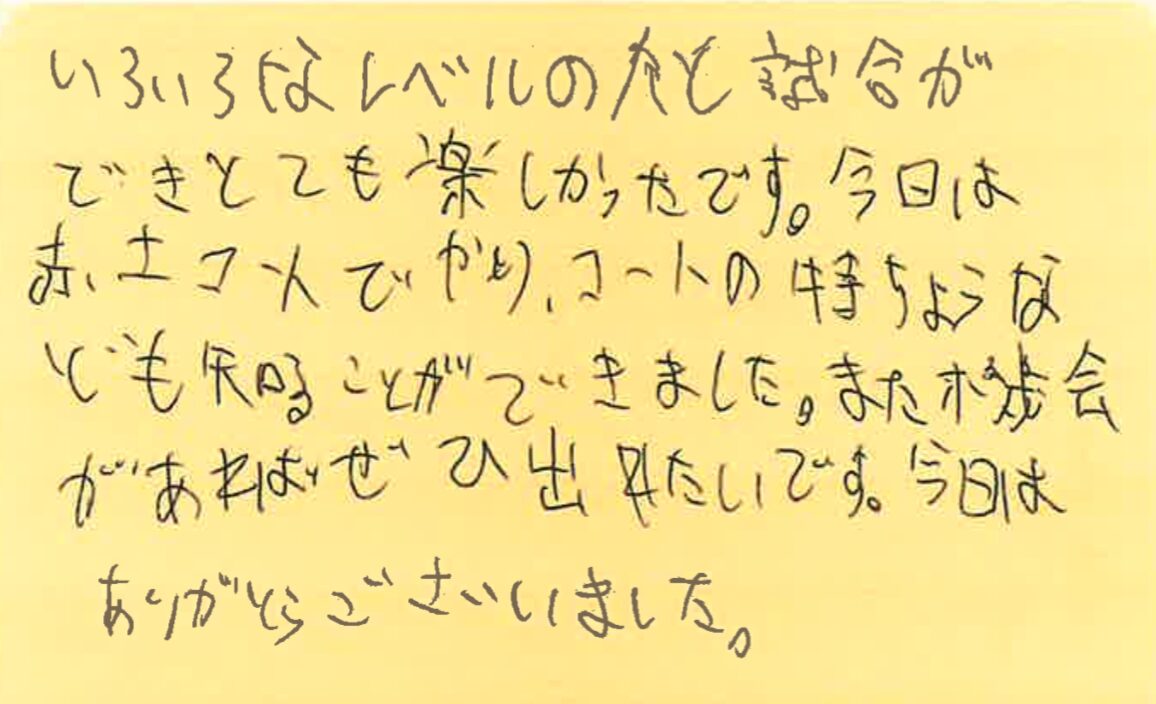 いろいろなレベルの人と試合が
できとても楽しかったです。今日は
赤土コートでやり、コートの特ちような
ども知ることができました。また機会
があればぜひ出たいです。今日は
ありがとうございました。